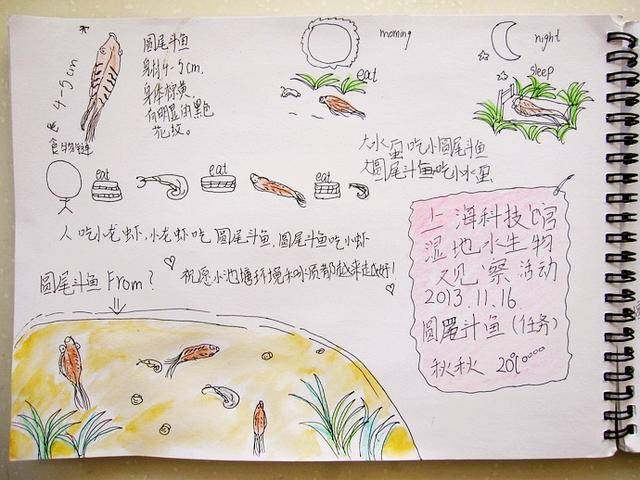 4-5cm
圆尾斗鱼
身材4-5cm.
身体棕黄
有明显的黑色
花纹。
morning
eat
night
sleep
食物链
eat
eat
eat
大水虿吃小圆尾斗鱼
大圆尾斗鱼吃小水虿
人吃小龙虾,小龙虾吃圆尾斗鱼,圆尾斗鱼吃小虾
圆尾斗鱼 From?
祝愿小池塘环境和水质都越来越好!
上海科技馆
湿地水生物
观察活动
2013.11.16
圆尾斗鱼(任务)
秋秋